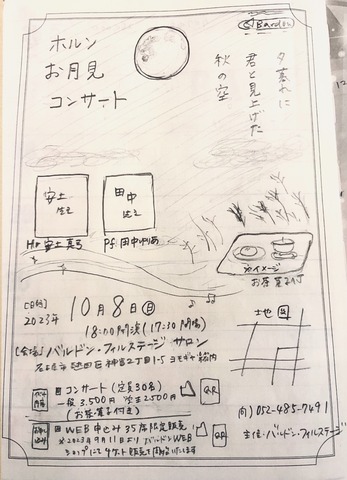 Bardon
ホルン
お月見
コンサート
夕暮れに
君と見上げた
秋の空
安土
田中
Hr 安土真弓
Pf 田中
イメージ
お茶菓子付
[日時]
2023年 10月8日(日)
18:00開演 (17:30開場)
[会場] バルドン・フィルステージ サロン
名古屋市熱田区神宮2丁目1-5
地図
コンサート (定員30名)
一般 3,500円 学生 2,500円
(お茶菓子付き)
QR
WEB申込み 35席限定販売
※2023年9月11日よりバルドンWEB
ショップにてチケット販売を開始いたします
QR
問) 052-485-7491
主催・バルドン・フィルステージ